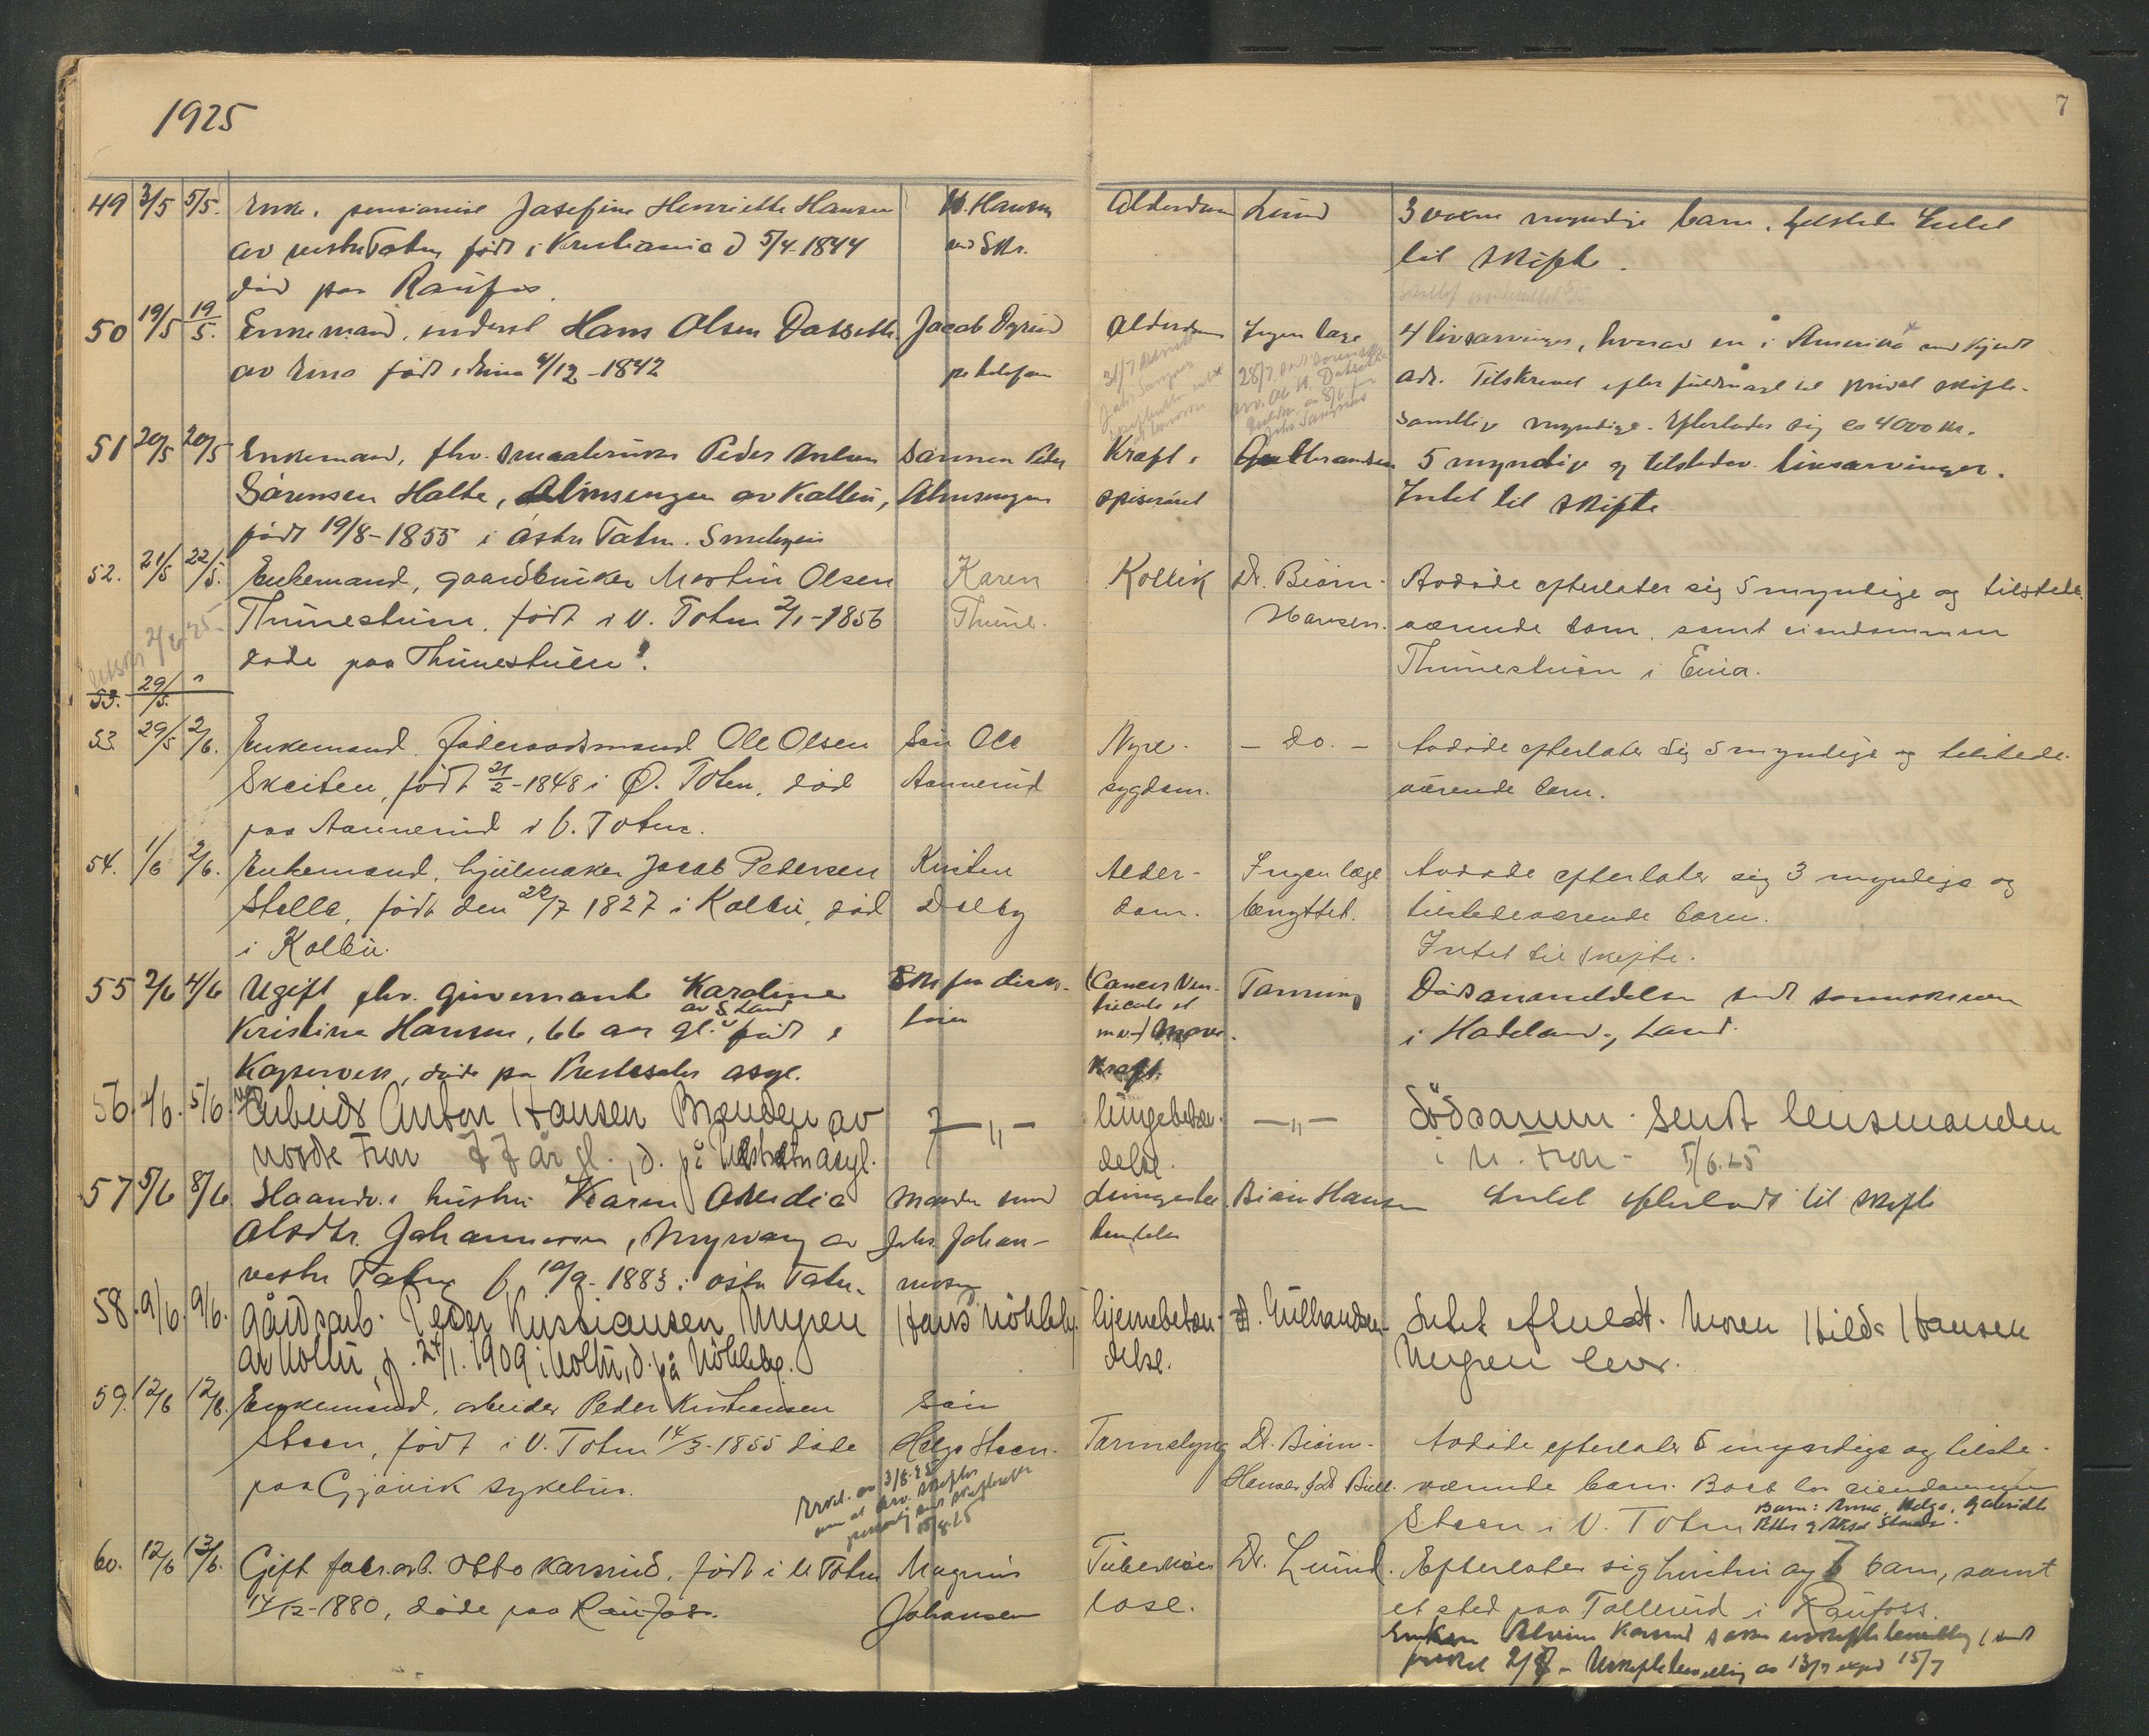 1925
7
49 3/5 5/5. Enke, pensionist Josefine Henriette Hansen
av vestre Toten født i Kristiania d 5/4-1844
død paa Raufoss.
H. Hansen
Alderdom Lund
3 voksne myndige barn, tilstede Intet
til skifte.
50 19/5 19/5. Enkemand, inderst Hans Olsen Dalseth
av Eina født i Eina 4/12-1842
Jacob Dyrud
pr telefon
Alderdom Ingen læge
4 livsarvinger, hvorav en i Amerika med kjendt
adr. Tilskrevet efter fuldmagt til privat skifte.
Samtlige myndige. Efterlader sig ca 4000 kr.
51 20/5 20/5 Enkemand, fhv. smaabruker Peder Anton
Sørensen Holte, Almsengen av Kolbu,
født 19/8-1855 i østre Toten.
Sønnen Peder
Almsengen
Kræft i
spiserøret
Gulbrandsen
5 myndige og tilstedev. livsarvinger.
Intet til skifte
52. 21/5 22/5. Enkemand, gaardbruker Martin Olsen
Thunestuen, født i V. Toten 2/1-1856
døde paa Thunestuen.
Karen
Thune.
Kollik Dr. Bjørn-
Hansen.
Avdøde efterlater sig 5 myndige og tilstede
værende barn, samt eiendommen
Thunestuen i Eina.
53. 29/5. "
53. 29/5 2/6. Enkemand, føderaadsmand Ole Olsen
Skeiten, født 21/2-1848 i Ø. Toten, død
paa Aannerud i V. Toten.
Søn Ole
Aannerud
Nyre-
sygdom.
- Do. -
Avdøde efterlater sig 5 myndige og tilstede-
værende barn.
54. 1/6 2/6. Enkemand, hjulmaker Jacob Pedersen
Stelle, født den 20/7 1827 i Kolbu, død
i Kolbu.
Kristen
Dalby
Alder-
dom.
Ingen læge
benyttet.
Avdøde efterlater sig 3 myndige og
tilstedeværende barn.
Intet til skifte.
55 2/6 4/6 Ugift fhv. guvernante Karoline
av S Land
Kristine Hansen, 66 aar gl. født i
døde pa Prestesæter asyl.
Skr fra direk-
tøren
(Cancer Ven-
triculi
Kræft.
Tanning
Dødsanmeldelse sendt sorenskriveren
i Hadeland, Land.
56. 4/6. 5/6. Arbeider Anton Hansen Brænden av
nordre Fron 77 år gl., d. på Prestesæter asyl.
- " -
lungebetæn-
delse.
- " -
Dødsanm. sendt lensmanden
i N. Fron - 5/6.25
57 5/6 8/6. Haandv.s hustru Karen Oleedia
Olsdtr. Johannesen, Myrvang av
vestre Toten f. 10/9-1883 i østre Toten.
Manden smed
Johs Johan-
nesen
Lungebe
tendelse
Bjørn Hansen
Intet efterladt til skifte
58. 9/6. 9/6. Gårdsarb. Peder Kristiansen Myren
av Kolbu, f. 24/1.1909 i Kolbu, d. på Nøkleby.
Hans Nökleby.
hjernebetæn-
delse.
Dr. Gulbrandsen
Intet efterladt. Moren Hilda Hansen
Myren lever.
59. 12/6 12/6. Enkemand, arbeider Peder Kristiansen
Steen, født i V. Toten 14/3-1855 døde
paa Gjøvik sykehus.
Søn
Helge Steen.
Tarmslyng Dr. Bjørn-
Hansen
Avdøde efterlater 5 myndige og tilste-
værende barn. Boet har eiendommen
Steen i V. Toten
Barn: Anna, Helga,
60. 12/6 13/6. Gift fabr.arb. Otto Karsrud, født i V Toten
14/12-1880, døde paa Raufoss.
Magnus
Johansen
Tuberku-
lose.
Dr. Lund.
Efterlater sig hustru og 7 barn, samt
et sted paa Tollerud i Raufoss.
Enken Alvine Karsrud søker uskiftebevilling
Uskiftebevilling av 13/7 exped 15/7